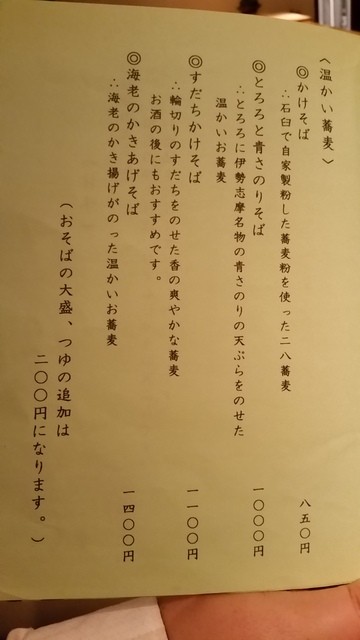 〈温かい蕎麦〉
◎かけそば 八五〇円
∴石臼で自家製粉した蕎麦粉を使った二八蕎麦
◎とろろと青さのりそば 一〇〇〇円
∴とろろに伊勢志摩名物の青さのりの天ぷらをのせた
温かいお蕎麦
◎すだちかけそば 一一〇〇円
∴輪切りのすだちをのせた香の爽やかな蕎麦
お酒の後にもおすすめです。
◎海老のかきあげそば 一四〇〇円
∴海老のかき揚げがのった温かいお蕎麦
（おそばの大盛、つゆの追加は
二〇〇円になります。）